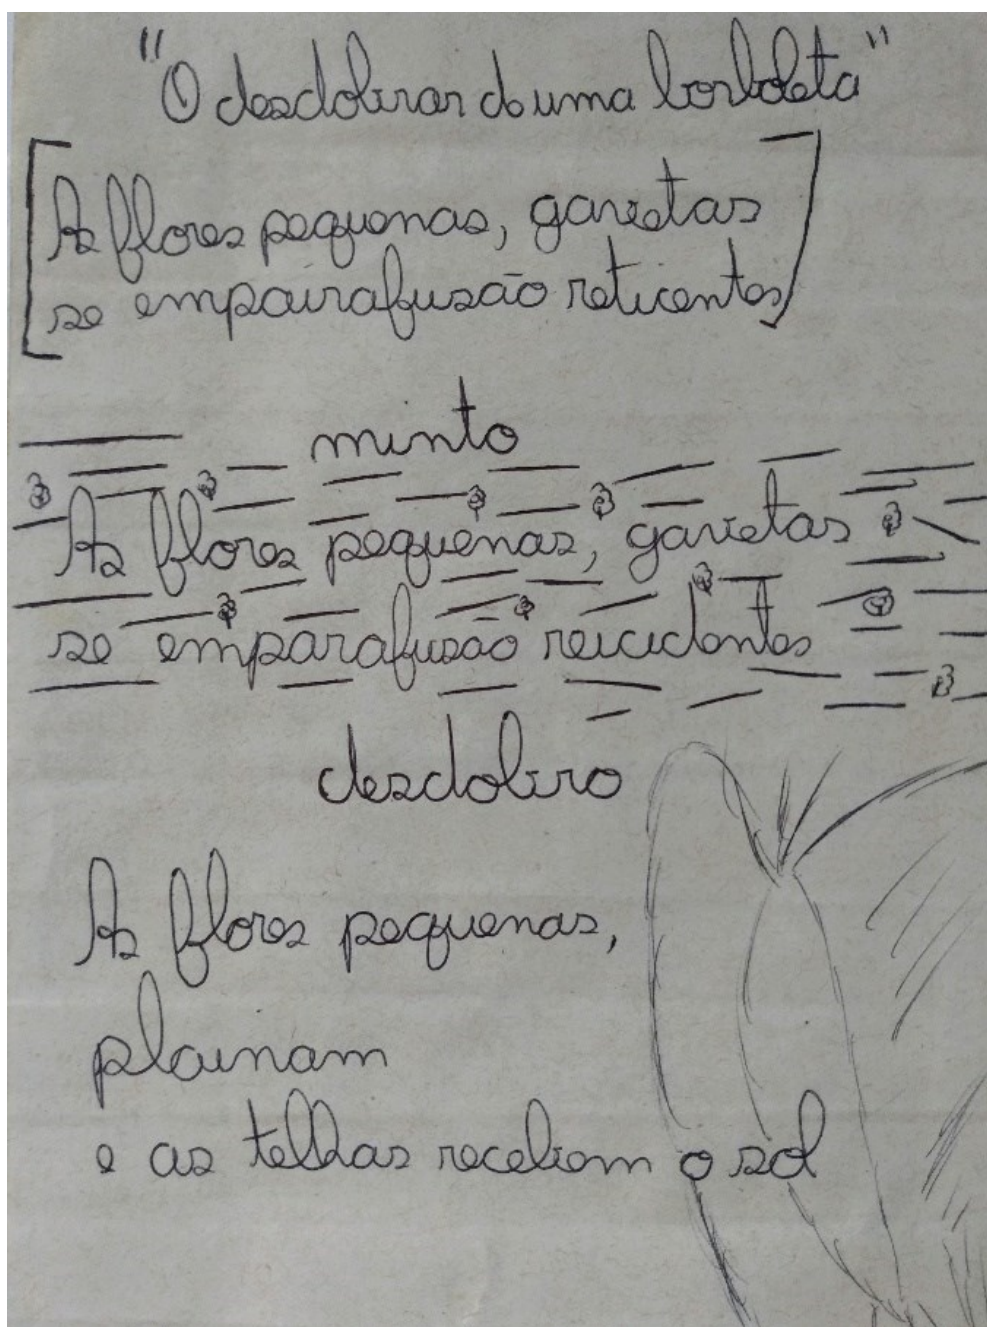 "O desdobrar de uma borboleta"
[As flores pequenas, gavetas
se emparafusão reticentes]
minto
As flores pequenas, gavetas
se emparafusão reicidentes
desdobro
As flores pequenas,
plainam
e as telhas recebem o sol